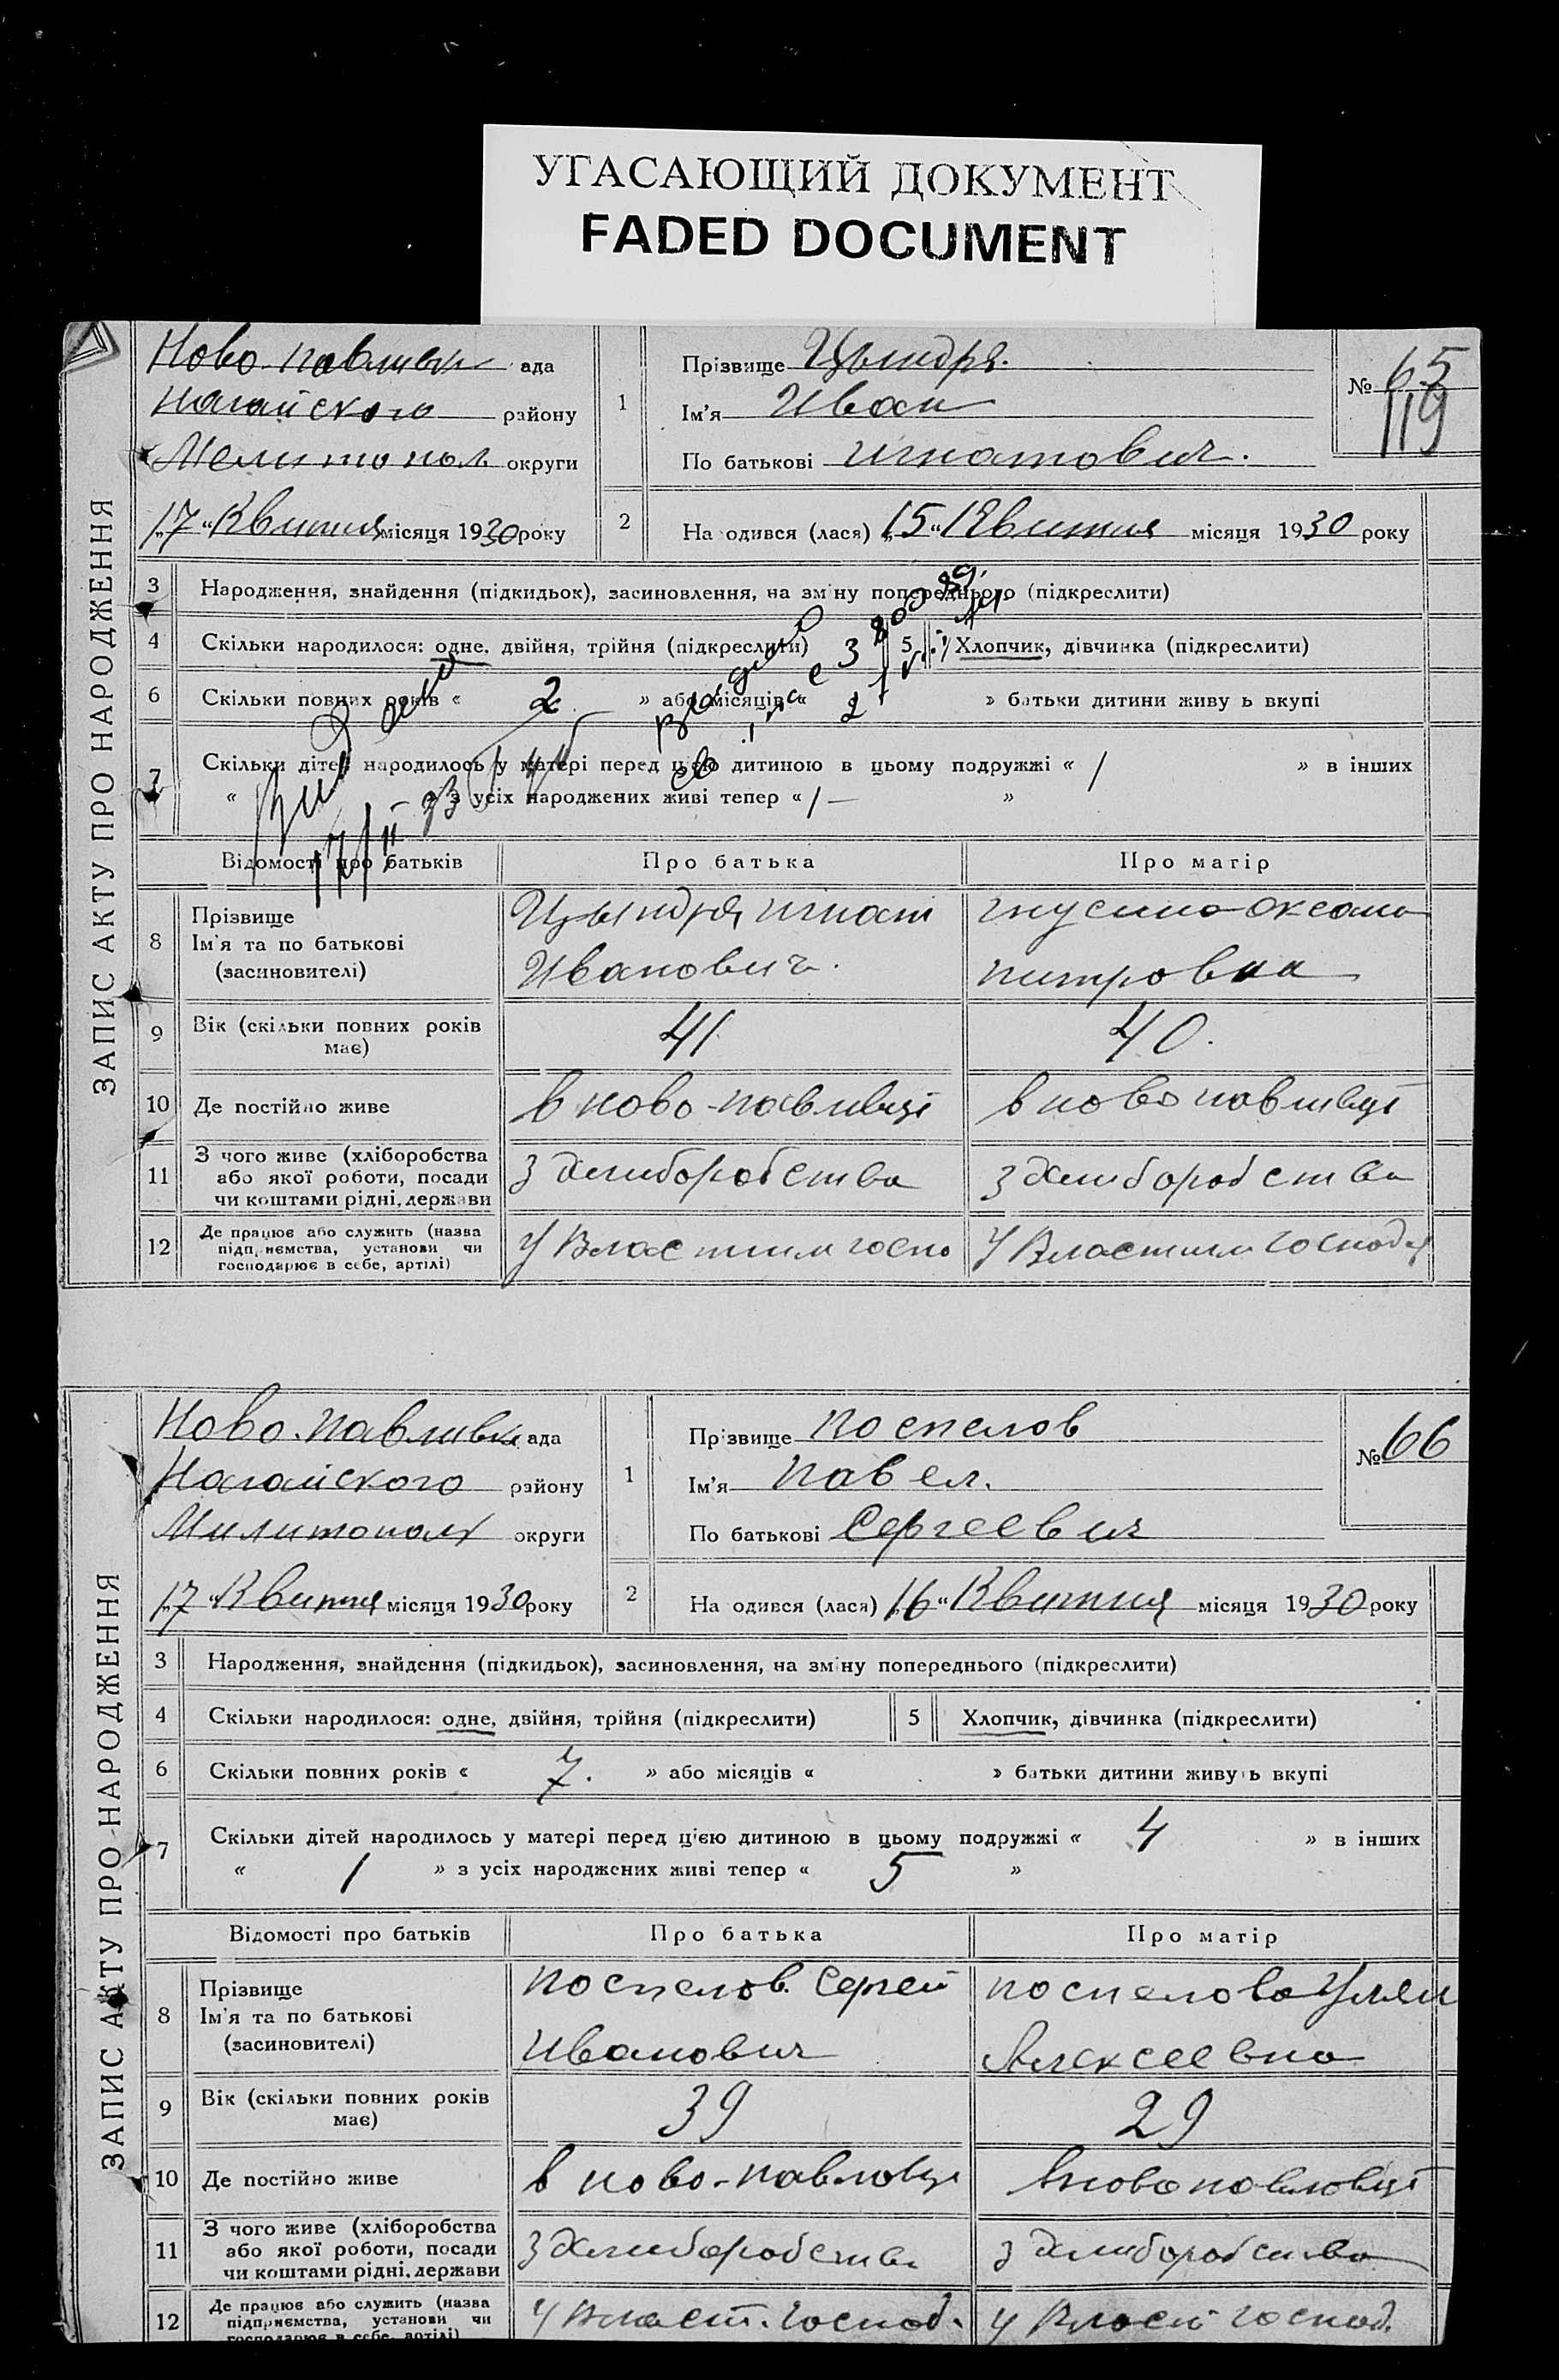 УГАСАЮЩИЙ ДОКУМЕНТ
FADED DOCUMENT
ЗАПИС АКТУ ПРО НАРОДЖЕННЯ
Ново-павливк ада
Нагайского району
Мелитопол округи
"17" Квитня місяця 1930 року
1
Прізвище Цындря.
Ім'я Иван
По батькові игнатович.
№ 65
119
2 На одився (лася) "15" Квитня місяця 1930 року
3 Народження, знайдення (підкидьок), засиновлення, на зм ну попереднього (підкреслити)
4 Скільки народилося: одне, двійня, трійня (підкреслити) 5 Хлопчик, дівчинка (підкреслити)
6 Скільки повних років « 2 » або місяців « » батьки дитини живу ь вкупі
7 Скільки дітей народилось у матері перед цією дитиною в цьому подружжі « 1 » в інших
« з усіх народжених живі тепер « 1 — »
Відомості про батьків Про батька Про матір
8 Прізвище
Ім'я та по батькові
(засиновителі)
Цындря игнат
Иванович.
гнусина оксана
питровна
9 Вік (скільки повних років
має)
41
40.
10 Де постійно живе в ново-павливці в ново павливці
11 З чого живе (хліборобства
або якої роботи, посади
чи коштами рідні, держави
З хлиборобства
з хлиборобства
12 Де працює або служить (назва
підп, немства, установи чи
господарює в себе, артілі)
У Властним госпо
У Властним господ
ЗАПИС АКТУ ПРО НАРОДЖЕННЯ
Ново-павливк ада
Нагайского району
Милитопол округи
"17" Квитня місяця 1930 року
1
Пр звище поспелов
Ім'я павел.
По батькові Сергеевич
№ 66
2 На одився (лася) "16" Квитня місяця 1930 року
3 Народження, знайдення (підкидьок), засиновлення, на зм ну попереднього (підкреслити)
4 Скільки народилося: одне, двійня, трійня (підкреслити) 5 Хлопчик, дівчинка (підкреслити)
6 Скільки повних років « 7. » або місяців « » батьки дитини живу ь вкупі
7 Скільки дітей народилось у матері перед цією дитиною в цьому подружжі « 4 » в інших
« 1 » з усіх народжених живі тепер « 5 »
Відомості про батьків Про батька Про матір
8 Прізвище
Ім'я та по батькові
(засиновителі)
поспелов Сергей
Иванович
поспелова Улян
Алексеевна
9 Вік (скільки повних років
має)
39
29
10 Де постійно живе в ново-павловці в ново павловці
11 З чого живе (хліборобства
або якої роботи, посади
чи коштами рідні, держави
З хлиборобства
з хлиборобства
12 Де працює або служить (назва
підприємства, установи чи
господарює в себе, артілі)
У Власт. господ.
У Власт господ.